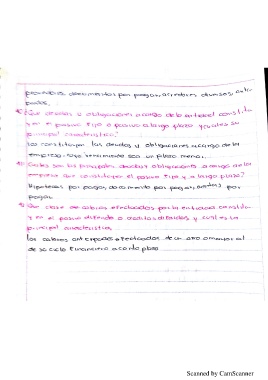 proveedores, documentos por pagar, acreedores diversos, anti-
pados.
¿Que deudas u obligaciones a cargo de la entidad constitu-
yen el pasivo fijo o pasivo a largo plazo y cual es su
principal caracteristica?
Las constituyen las deudas y obligaciones a cargo de la
empresa, cuyo vencimiento sea un plazo menor.
¿Cuales son las principales deudas y obligaciones a cargo de la
empresa que constituyen el pasivo fijo y a largo plazo?
Hipotecas por pagar, documento por pagar, por
pagar.
Que clase de cobros efectuados por la entidad constitu-
yen el pasivo diferido o creditos diferidos y cual es su
principal caracteristica
los cobros anticipados efectuados de un año o menor al
de su ciclo financiero a corto plazo
Scanned by CamScanner